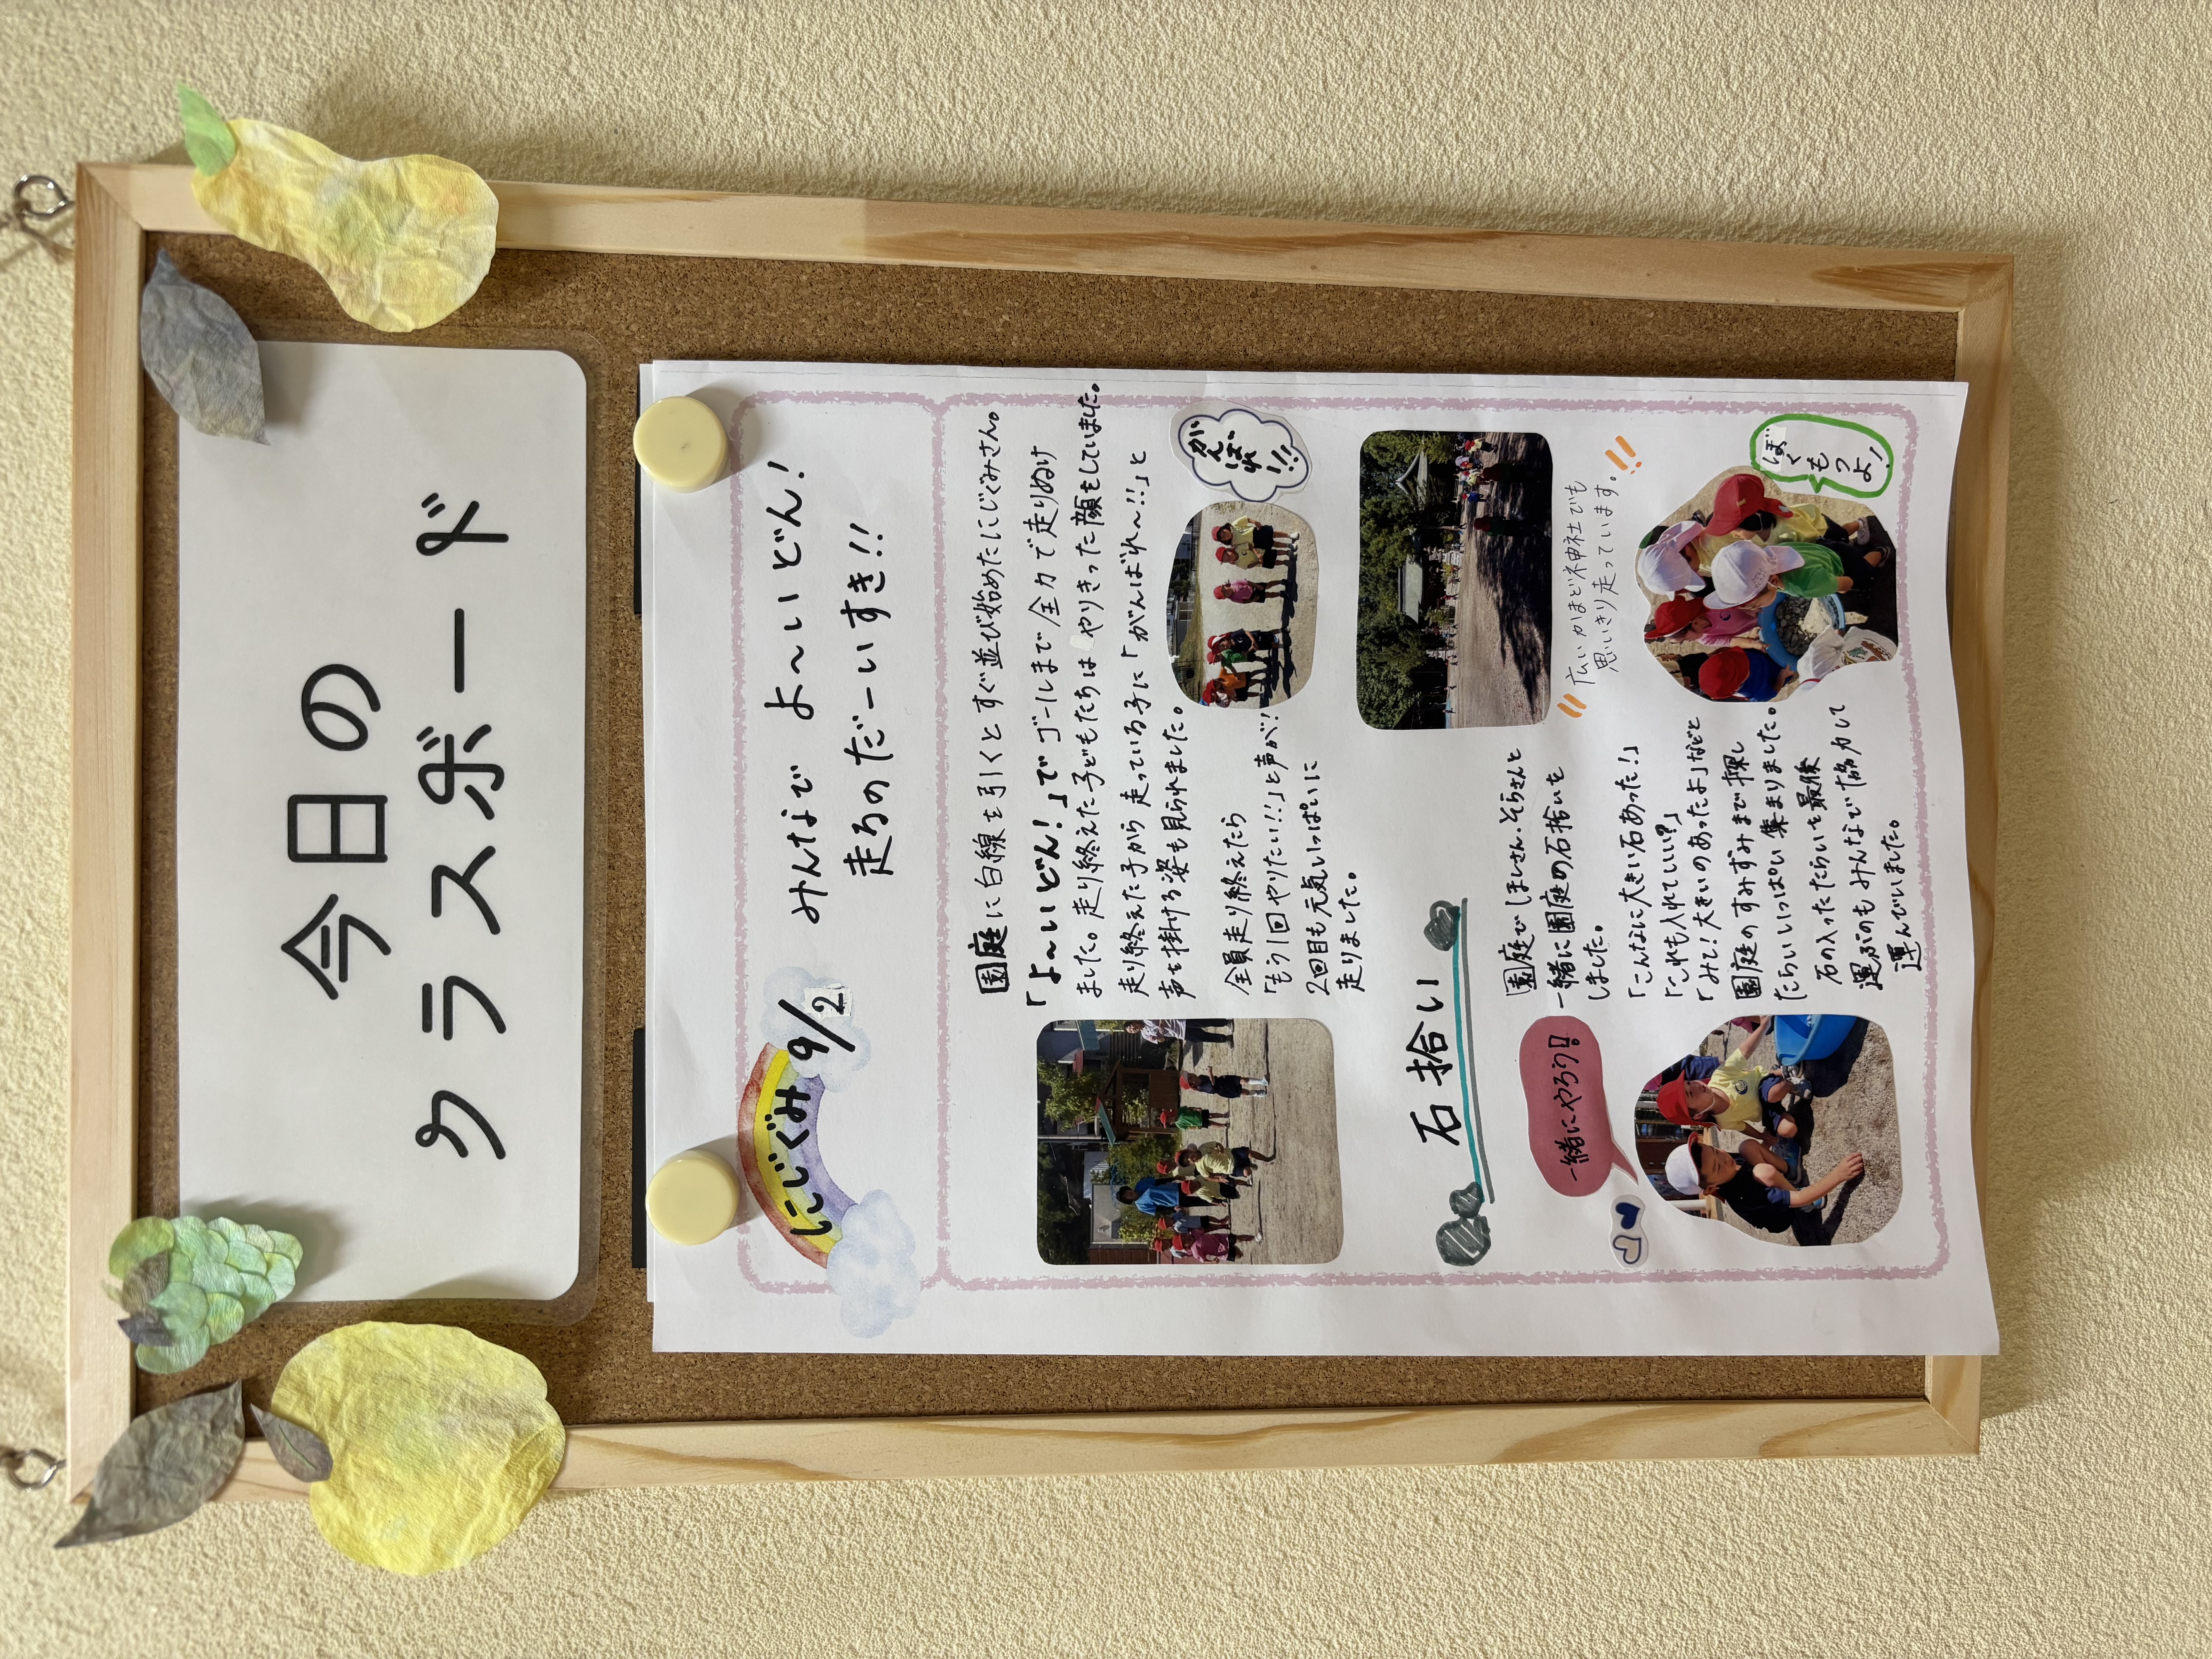 今日の
クラスボード
にじぐみ
9/2
みんなで よ〜いどん!
走るのだーいすき!!
園庭に白線を引くとすぐ並び始めたにじぐみさん。
「よ〜いどん!」でゴールまで全力で走りぬけ
ました。走り終えた子どもたちはやりきった顔をしていました。
走り終えた子から走っている子に「がんばれ〜!!」と
声を掛ける姿も見られました。
がんばれ!!!
全員走り終えたら
「もう1回やりたい!!」と声が!
2回目も元気いっぱいに
走りました。
広いかまど神社でも
思いきり走っています。!!
石拾い
園庭でほしさん、そらさんと
一緒に園庭の石拾いを
しました。
「こんなに大きい石あった!」
「これも入れていい?」
「みて!大きいのあったよ」などと
園庭のすみずみまで探し
たらいいっぱい集まりました。
石の入ったたらいを最後
運ぶのもみんなで協力して
運んでいました。
一緒にやろう!!
ぼくもつよ!